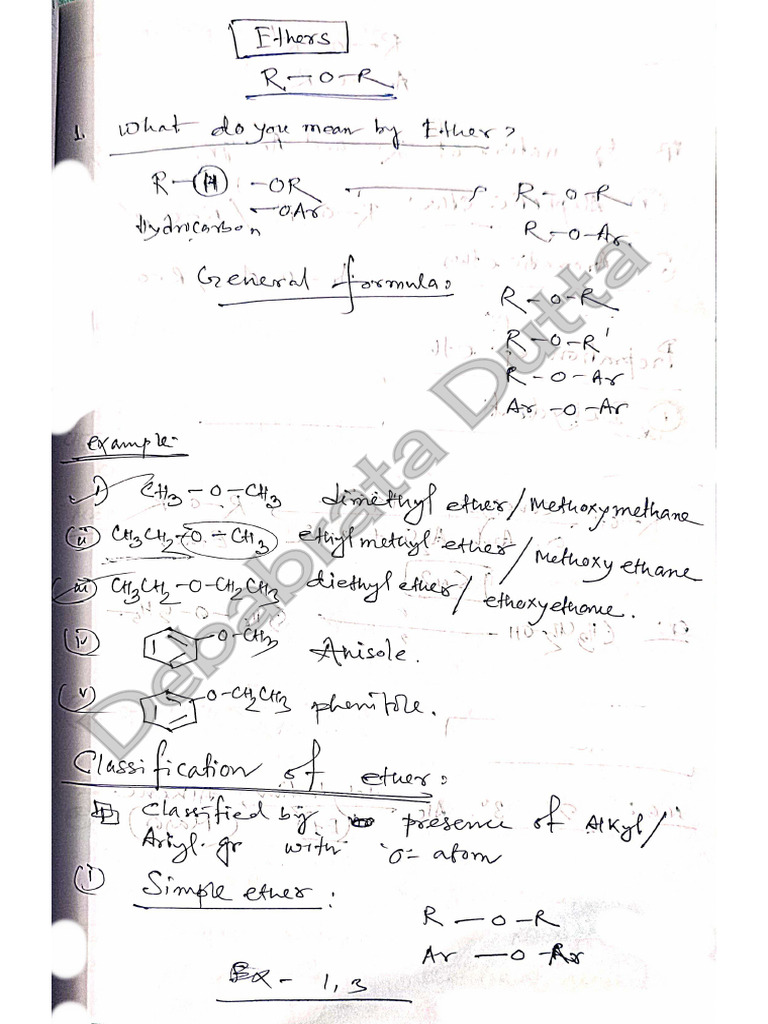 Ethers
R-O-R
1. What do you mean by Ether?
R-(H) -OR → R-O-R
-OAr R-O-Ar.
Hydrocarbon
General formula:
R-O-R
R-O-R'
R-O-Ar
Ar-O-Ar
example:-
i) CH3-O-CH3 dimethyl ether/Methoxymethane
ii) CH3CH2-O-CH3 ethylmethyl ether/Methoxyethane
iii) CH3CH2-O-CH2CH3 diethyl ether/ethoxyethane.
iv) O-CH3 Anisole.
v) O-CH2CH3 phenitole.
Classification of ether:
Classified by presence of Alkyl/
Aryl. gr with 'O= atom
i) Simple ether:
R-O-R
Ar-O-Ar
Ex- 1, 3
Debabrata Dutta